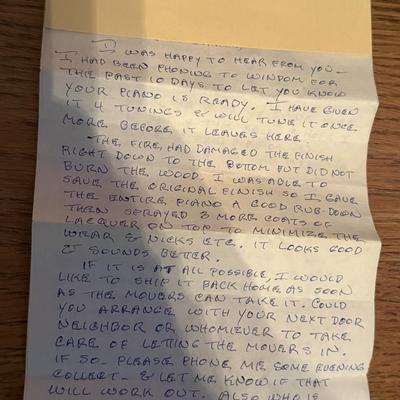 I WAS HAPPY TO HEAR FROM YOU -
I HAD BEEN PHONING TO WINDOM FOR
THE PAST 10 DAYS TO LET YOU KNOW
YOUR PIANO IS READY. I HAVE GIVEN
IT 4 TUNINGS & WILL TUNE IT ONCE
MORE BEFORE IT LEAVES HERE.
THE FIRE, HAD DAMAGED THE FINISH
RIGHT DOWN TO THE BOTTOM BUT DID NOT
BURN THE WOOD. I WAS ABLE TO
SAVE THE ORIGINAL FINISH SO I GAVE
THE ENTIRE PIANO A GOOD RUB-DOWN
THEN SPRAYED 3 MORE COATS OF
LACQUER ON TOP TO MINIMIZE THE
WEAR & NICKS ETC. IT LOOKS GOOD
& SOUNDS BETTER.
IF IT IS AT ALL POSSIBLE, I WOULD
LIKE TO SHIP IT BACK HOME AS SOON
AS THE MOVERS CAN TAKE IT. COULD
YOU ARRANGE WITH YOUR NEXT DOOR
NEIGHBOR OR WHOMEVER TO TAKE
CARE OF LETTING THE MOVERS IN.
IF SO - PLEASE PHONE ME SOME EVENING
COLLECT - & LET ME KNOW IF THAT
WILL WORK OUT. ALSO WHO IS